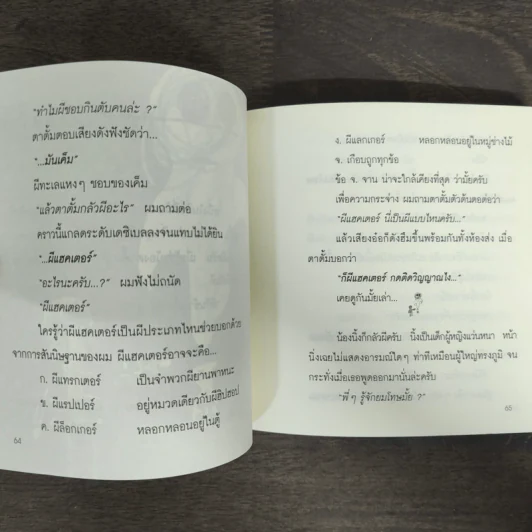 "ทำไมผีชอบกินตับคนล่ะ ?"
ตาดั้มตอบเสียงดังฟังชัดว่า...
"...มันเค็ม"
ผีทะเลแหงๆ ชอบของเค็ม
"แล้วตาดั้มกลัวผีอะไร" ผมถามต่อ
คราวนี้แกลดระดับเดซิเบลลงจนแทบไม่ได้ยิน
"...ผีแฮคเตอร์"
"อะไรนะครับ...?" ผมฟังไม่ถนัด
"ผีแฮคเตอร์"
ใครรู้ว่าผีแฮคเตอร์เป็นผีประเภทไหนช่วยบอกด้วย
จากการสันนิษฐานของผม ผีแฮคเตอร์อาจจะคือ...
ก. ผีแทรกเตอร์ เป็นจำพวกผียานพาหนะ
ข. ผีแรปเปอร์ อยู่หมวดเดียวกับผีฮิปฮอป
ค. ผีล็อกเกอร์ หลอกหลอนอยู่ในตู้
64
ง. ผีแลกเกอร์ หลอกหลอนอยู่ในหมู่ช่างไม้
จ. เกือบถูกทุกข้อ
ข้อ จ. จาน น่าจะใกล้เคียงที่สุด ว่ามั้ยครับ
เพื่อความกระจ่าง ผมถามตาดั้มตัวต้นตอต่อว่า
"ผีแฮคเตอร์ นี่เป็นผีแบบไหนครับ..."
แล้วเสียงอ๋อก็ดังฮึมขึ้นพร้อมกันทั้งห้องส่ง เมื่อ
ตาดั้มบอกว่า
"ก็ผีแฮคเตอร์ กดติดวิญญาณไง..."
เคยดูกันมั้ยเล่า...
น้องนิ้งก็กลัวผีครับ นิ้งเป็นเด็กผู้หญิงแว่นหนา หน้า
นิ่งเฉยไม่แสดงอารมณ์ใดๆ ท่าทีเหมือนผู้ใหญ่ทรงภูมิ จน
กระทั่งเมื่อเธอพูดออกมานั่นล่ะครับ
"พี่ๆ รู้จักยมโทษมั้ย ?"
65